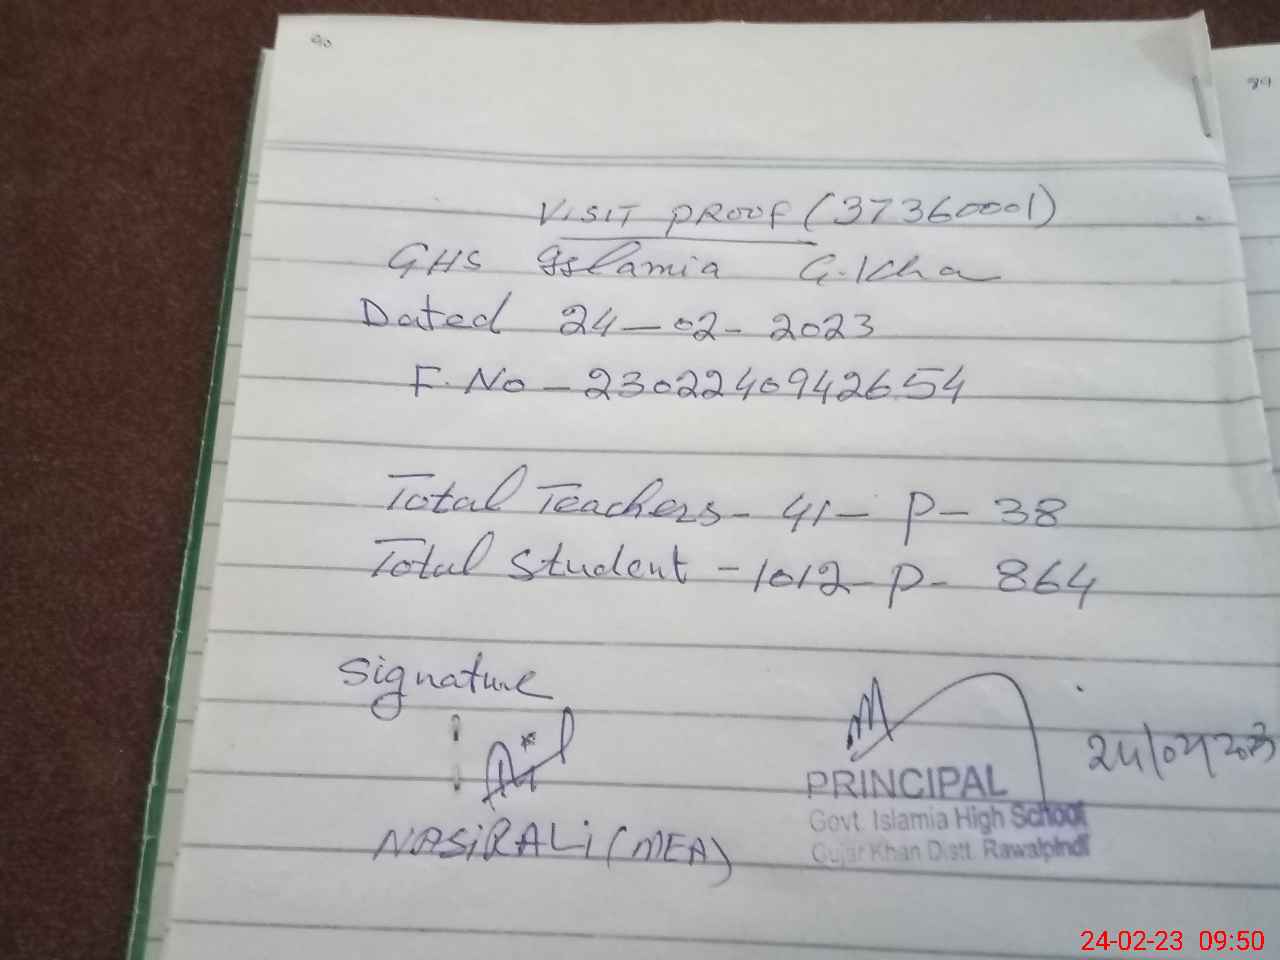 90
89
VISIT PROOF (37360001)
GHS Islamia G.Kha
Dated 24-02-2023
F.No - 2302240942654
Total Teachers - 41 - P - 38
Total Student - 1012 - P - 864
Signature
NASIR ALI (MEA)
24/02/2023
PRINCIPAL
Govt. Islamia High School
Gujar Khan Distt. Rawalpindi
24-02-23 09:50